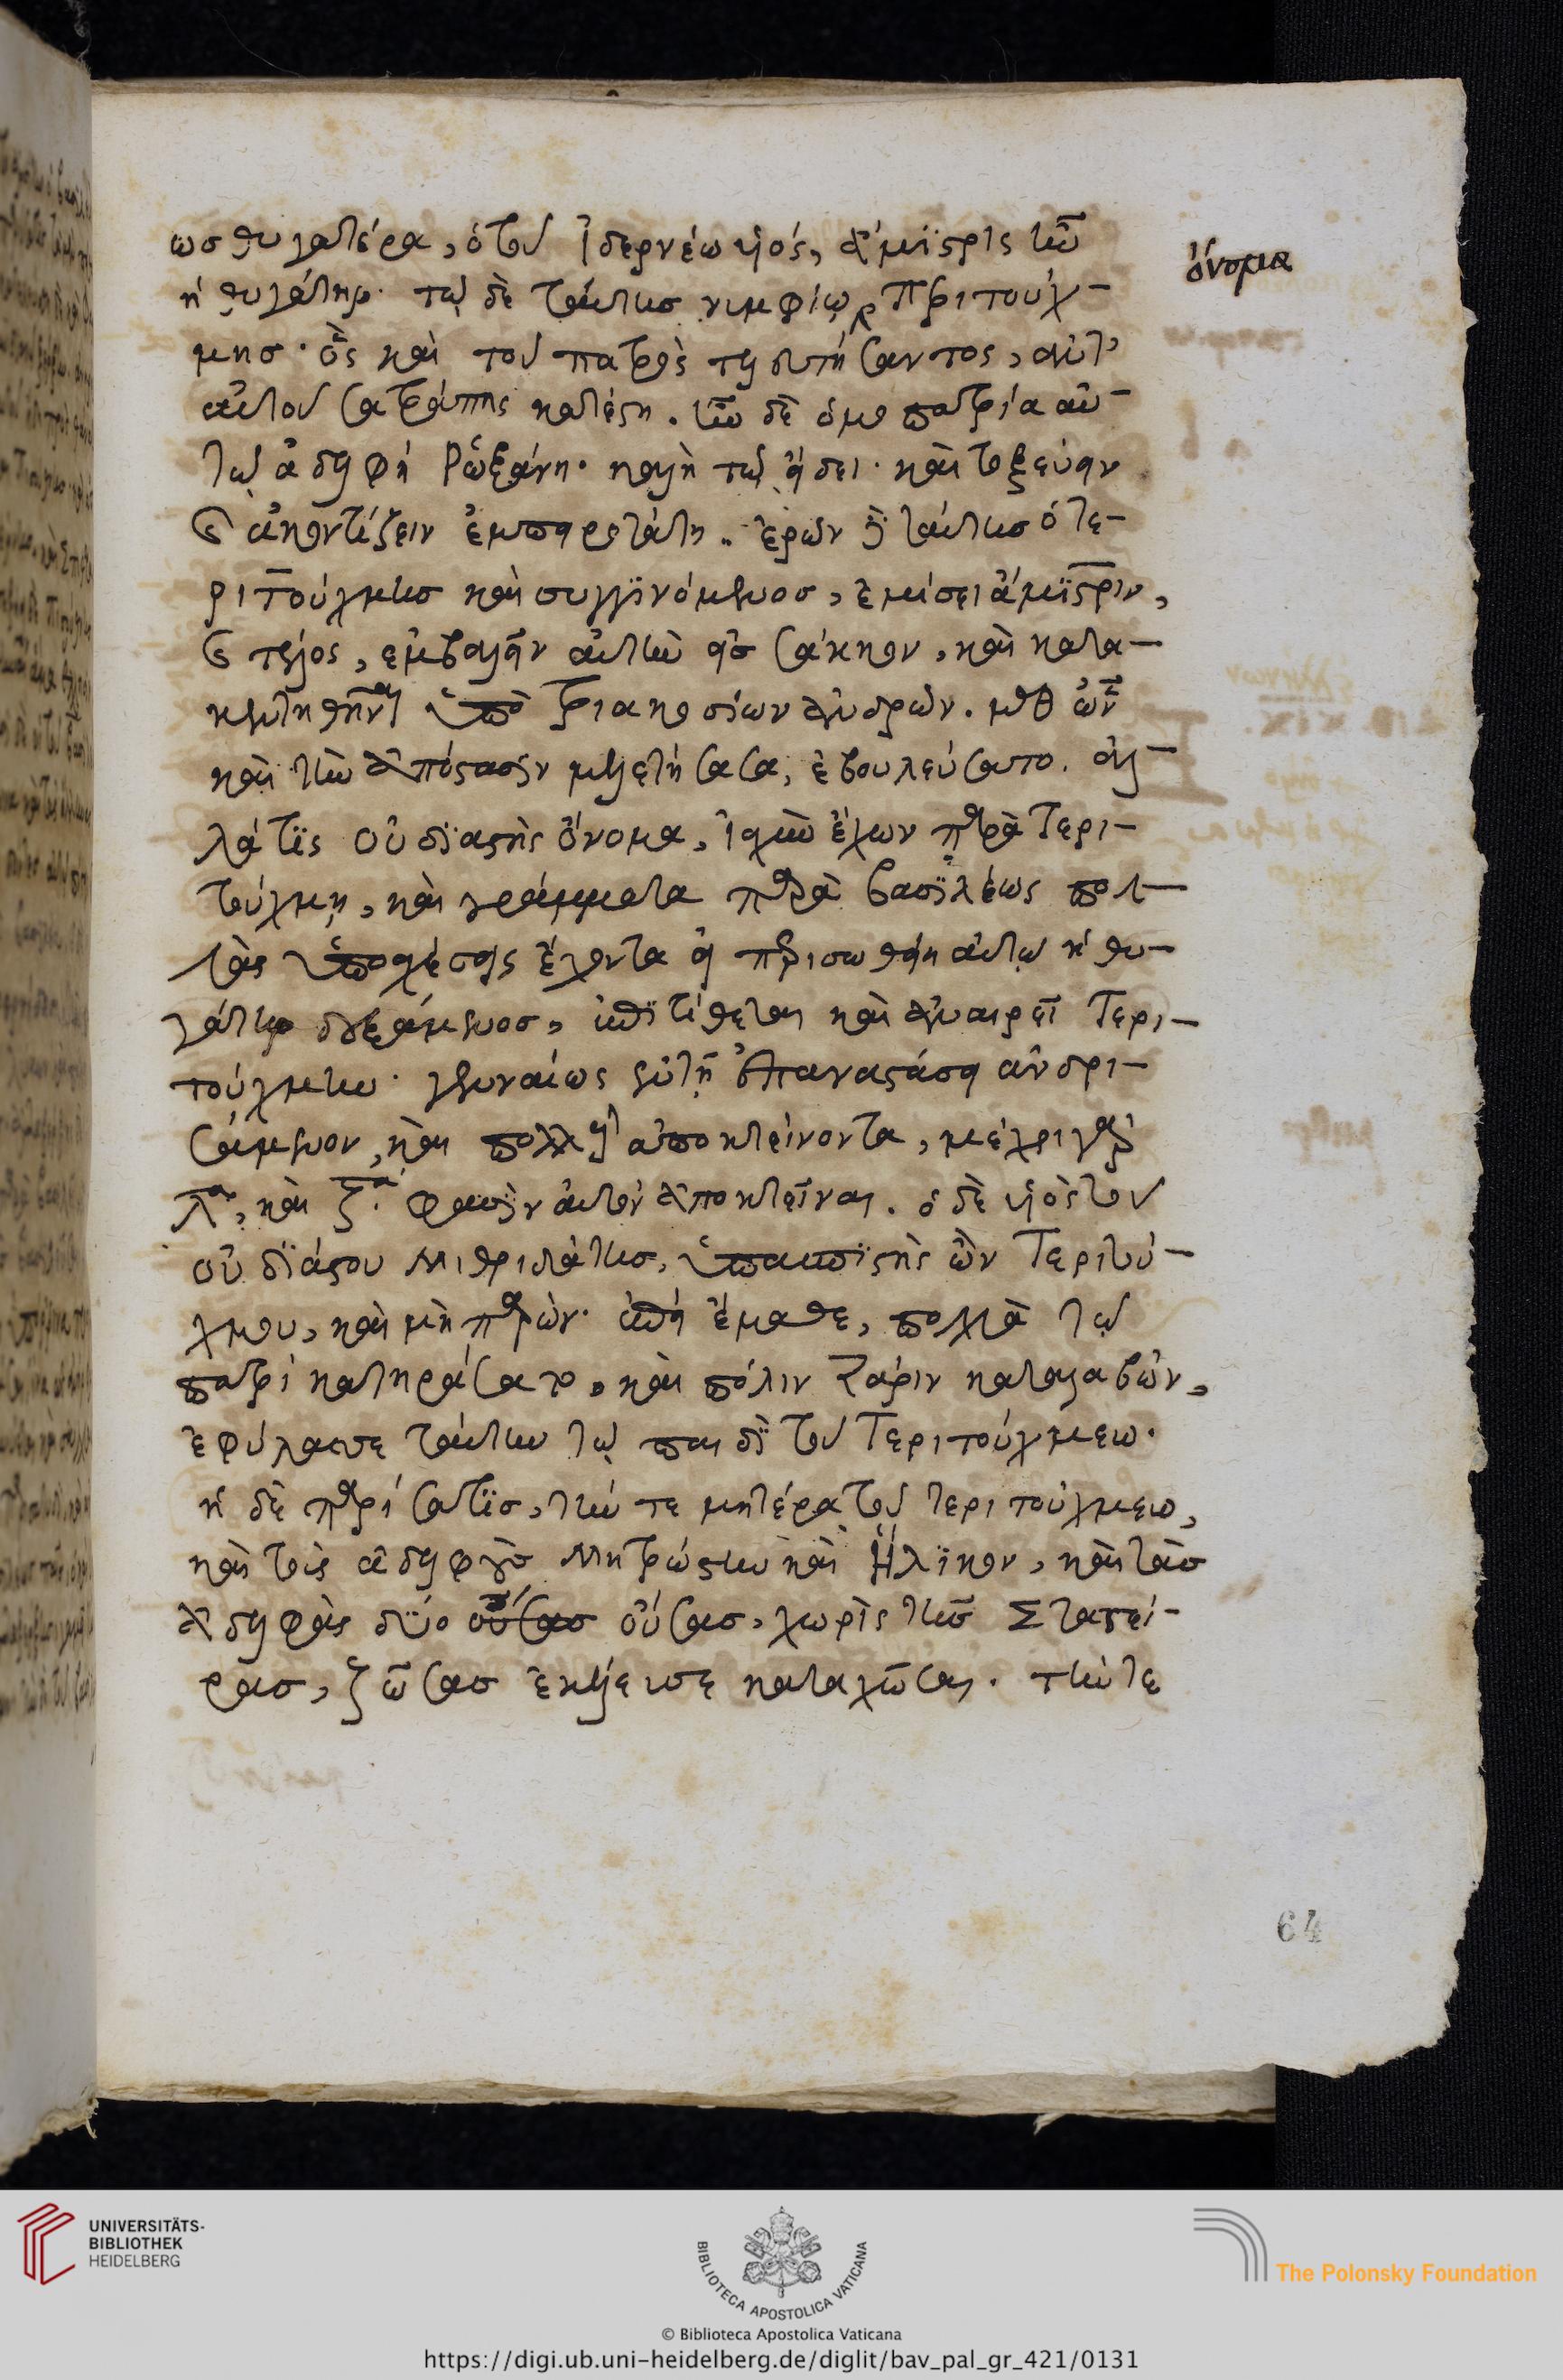 ως θυγατέρα, ὁ τοῦ Ἰδερνέω υἱός, ἀμϊστρις ἦν
ἡ θυγάτηρ· τῷ δὲ ταύτης νυμφίῳ Τεριτούχ-
μης· ὃς καὶ τοῦ πατρὸς τελευτήσαντος, ἀντ'
αὐτοῦ σατράπης κατέστη. ἦν δὲ ὁμοπατρία αὐ-
τῷ ἀδελφὴ Ῥωξάνη· καλὴ τῷ εἴδει· καὶ τοξεύειν
καὶ ἀκοντίζειν ἐμπειροτάτη. ἐρῶν δὲ ταύτης ὁ τε-
ριτούχμης καὶ συγγϊνόμενος, ἐμίσει ἀμϊστριν,
καὶ τέλος, ἐμβαλεῖν αὐτὴν εἰς σάκκον, καὶ κατα-
κεντηθῆναι ὑπὸ τριακοσίων ἀνδρῶν. μεθ' ὧν
καὶ τὴν ἀπόστασιν μελετήσασα, ἐβουλεύσατο. ἀλ-
λά τϊς οὐδϊάστης ὄνομα, ἰσχὺν ἔχων παρὰ Τερι-
τούχμῃ, καὶ γράμματα παρὰ βασϊλέως πολ-
λὰς ὑποσχέσεις ἔχοντα εἰ περισωθείη αὐτῷ ἡ θυ-
γάτηρ δεξάμενος, ἐπϊτίθεται καὶ ἀναιρεῖ Τερι-
τούχμην· γενναίως ἐν τῇ ἐπαναστάσει ἀνδρι-
σάμενον, καὶ πολλοὺς ἀποκτείνοντα, μέχρι γὰρ
λ, καὶ ζ. φασὶν αὐτὸν ἀποκτεῖναι. ὁ δὲ υἱὸς τοῦ
οὐδϊάστου Μιθριδάτης, ὑπασπϊστὴς ὢν Τεριτού-
χμου, καὶ μὴ παρών· ἐπεὶ ἔμαθε, πολλὰ τῷ
πατρὶ κατηράσατο, καὶ πόλιν Ζάριν καταλαβών,
ἐφύλασσε ταύτην τῷ παιδϊ τοῦ Τεριτούχμεω.
ἡ δὲ παρίσατϊς, τήν τε μητέρα τοῦ τεριτούχμεω,
καὶ τοὺς ἀδελφοὺς Μητρώστην καὶ Ἥλϊκον, καὶ τὰς
ἀδελφὰς δϋο οὔσας οὔσας, χωρὶς τῆς Στατεί-
ρας, ζώσας ἐκέλευσε καταχῶσαι. τήν τε
ὄνομα
64
UNIVERSITÄTS-
BIBLIOTHEK
HEIDELBERG
BIBLIOTECA APOSTOLICA VATICANA
The Polonsky Foundation
© Biblioteca Apostolica Vaticana
https://digi.ub.uni-heidelberg.de/diglit/bav_pal_gr_421/0131